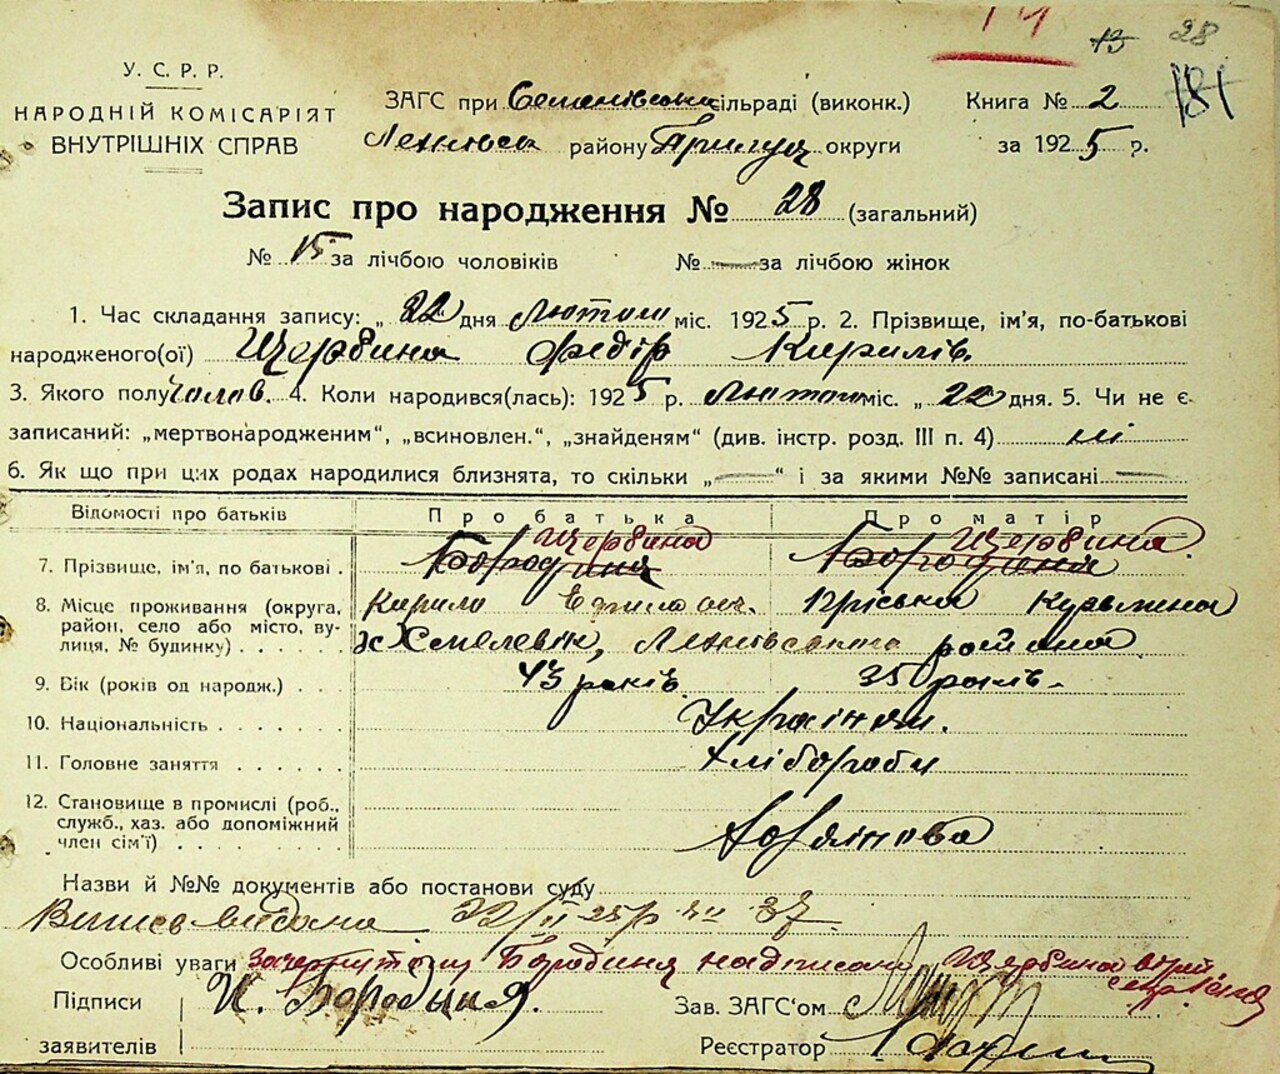 14 13 28
181
У. С. Р. Р.
НАРОДНІЙ КОМІСАРІЯТ
ВНУТРІШНІХ СПРАВ
ЗАГС при Семенівськ сільраді (виконк.)
району Прилуц округи
Книга № 2
за 1925 р.
Запис про народження № 28 (загальний)
№ 15 за лічбою чоловіків № — за лічбою жінок
1. Час складання запису: „ 22 дня Лютого міс. 1925 р. 2. Прізвище, ім'я, по-батькові
народженого(ої) Щербина Федір Кирилів.
3. Якого полу чолов. 4. Коли народився(лась): 1925 р. Лютого міс. „ 22 дня. 5. Чи не є
записаний: „мертвонародженим“, „всиновлен.“, „знайденям“ (див. інстр. розд. III п. 4) ні
6. Як що при цих родах народилися близнята, то скільки „ — “ і за якими №№ записані —
Відомості про батьків Про батька Про матір
Щербина Щербина
7. Прізвище, ім'я, по батькові . Бородиня Бородиня
Кирило Пріська Кузьмина
8. Місце проживання (округа, район, село або місто, вулиця, № будинку) . . . . . х Хмелевік, району
9. Вік (років од народж.) . . . 43 років. 35 років.
10. Національність . . . . . . . Українці.
11. Головне заняття . . . . . . Хлібороби
12. Становище в промислі (роб., служб., хаз. або допоміжний член сім'ї) . . . . . . . .
Назви й №№ документів або постанови суду
Випис видана 22/II 25 р № 37
Особливі уваги Зачеркнутому Бородиня надписано Щербина вірити
Підписи К. Бородыня. Зав. ЗАГС‘ом
заявителів Реєстратор